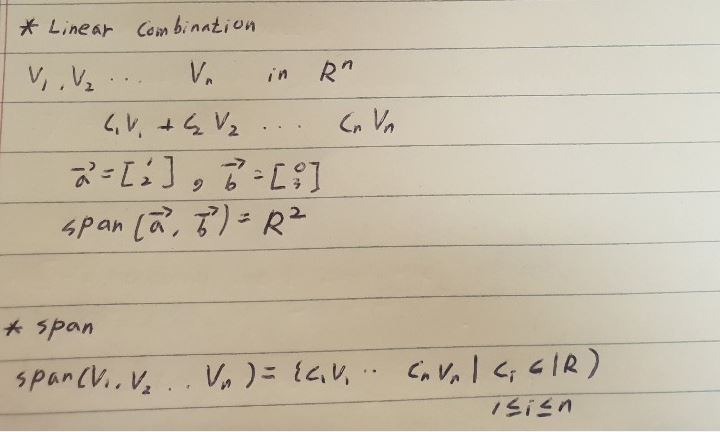 * Linear Combination
V₁, V₂ ... Vₙ in Rⁿ
C₁V₁ + C₂V₂ ... CₙVₙ
a⃗ = [1 2], b⃗ = [0 3]
span (a⃗, b⃗) = R²
* span
span(V₁, V₂ .. Vₙ) = {C₁V₁ .. CₙVₙ | Cᵢ ∈ ℝ)
1≤i≤n